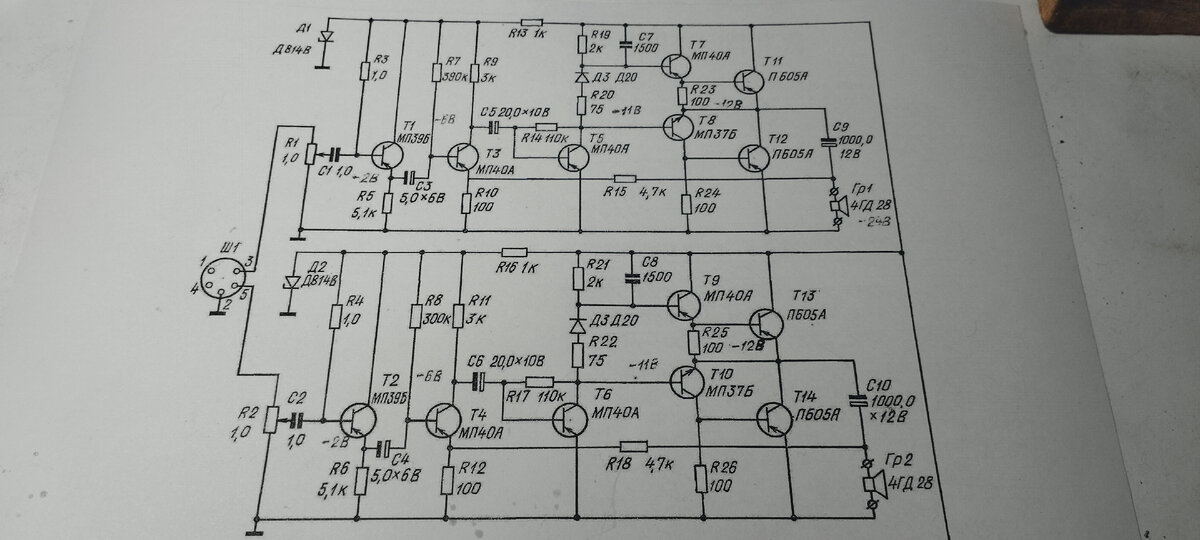 Д1
Д814В
R3
1,0
R13 1к
R7
390к
R9
3к
R19
2к
С7
1500
Д3 Д20
R20
75
-11В
Т7
МП40А
Т11
П605А
R23
100
-12В
Т1
МП39Б
-6В
С5 20,0×10В
R14 110к
Т5
МП40А
Т8
МП37Б
Т12
П605А
С9
1000,0
12В
R1
1,0
С1 1,0
-2В
R5
5,1к
С3
5,0×6В
Т3
МП40А
R10
100
R15 4,7к
R24
100
Гр1
4ГД 28
-24В
Ш1
1
3
4
5
2
Д2
Д814В
R4
1,0
R8
300к
R11
3к
R16 1к
R21
2к
С8
1500
Д3 Д20
R22
75
-11В
Т9
МП40А
Т13
П605А
R25
100
-12В
Т2
МП39Б
-6В
С6 20,0×10В
R17 110к
Т6
МП40А
Т10
МП37Б
Т14
П605А
С10
1000,0
×12В
R2
1,0
С2
1,0
-2В
R6
5,1к
С4
5,0×6В
Т4
МП40А
R12
100
R18 4,7к
R26
100
Гр2
4ГД 28